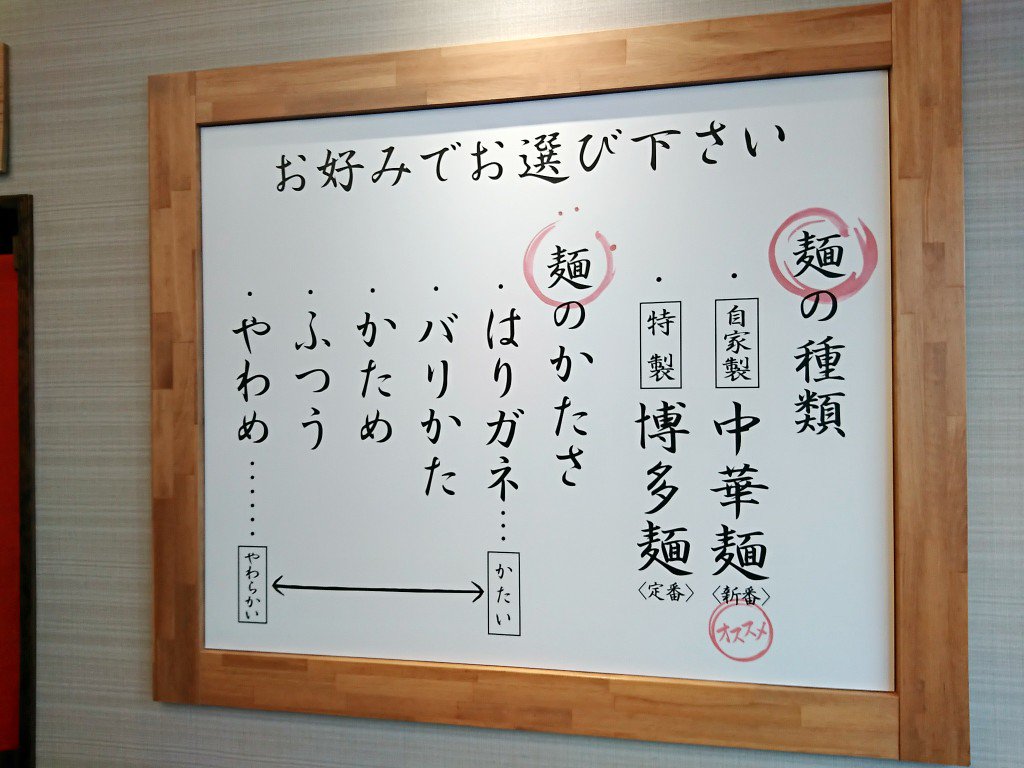 お好みでお選び下さい
麺の種類
・自家製 中華麺〈新番〉オススメ
・特製 博多麺〈定番〉
麺のかたさ
・はりガネ…かたい
・バリかた
・かため
・ふつう
・やわめ……やわらかい